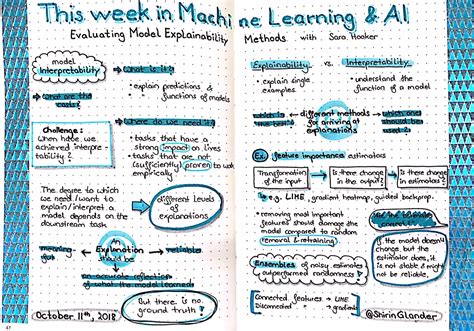 This week in Machine Learning & AI
Evaluating Model Explainability Methods with Sara Hooker
model
Interpretability
What is it?
• explain predictions &
functions of models
What are the
Where do we need it?
Challenge:
When have we
achieved interpre-
tability?
• tasks that have a
strong impact on lives
• tasks that are not
(sufficiently) proven to work
empirically
The degree to which
we need/want to
explain/interpret a
model depends on the
downstream task
different levels
of explanations
meaningful
An
Explanation
should be
reliable
an accurate reflection
of what the model learned
But there is no
ground truth!
October 11th, 2018
47
Explainability vs. Interpretability
• explain single
examples
• understand the
function of a model
which is
the best?
different methods
for arriving at
explanations
which one
should we
use?
Ex. feature importance estimators
Transformation
of the input
Is there change
in the output?
Is there change
in estimates?
e.g. LIME, gradient heatmap, guided backprop.
• removing most important
features should damage the
model compared to random
removal & retraining
If the model doesn't
change, but the
estimator does, it
is not stable & might
not be reliable.
Ensembles of noisy estimates
outperformed randomness!
Connected features → LIME
@ShirinGlander